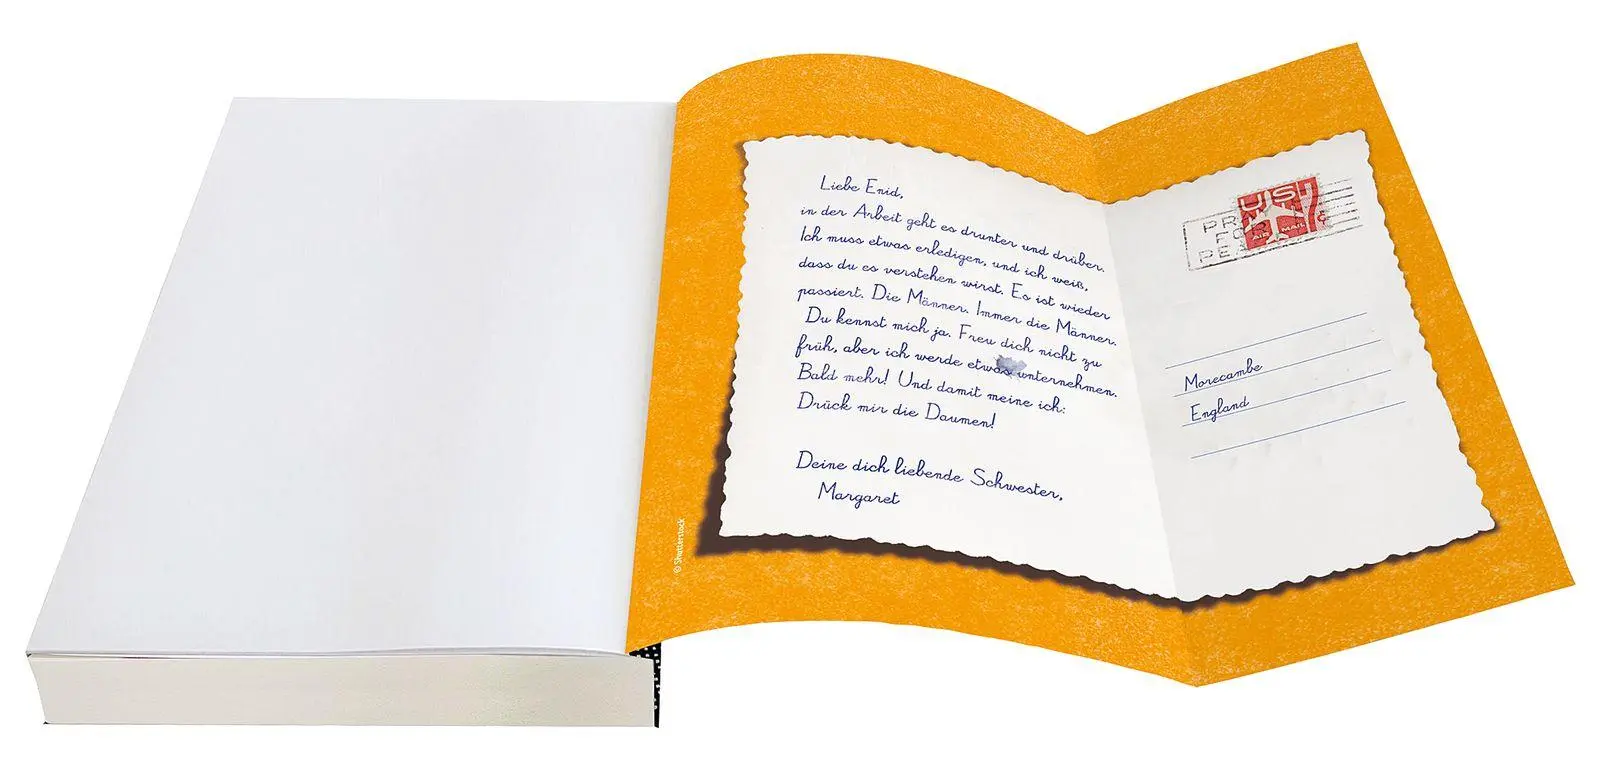 Liebe Enid,
in der Arbeit geht es drunter und drüber.
Ich muss etwas erledigen, und ich weiß,
dass du es verstehen wirst. Es ist wieder
passiert. Die Männer. Immer die Männer.
Du kennst mich ja. Freu dich nicht zu
früh, aber ich werde etwas unternehmen.
Bald mehr! Und damit meine ich:
Drück mir die Daumen!
Deine dich liebende Schwester,
Margaret
© Shutterstock
US
7¢
AIR MAIL
FOR
Morecambe
England